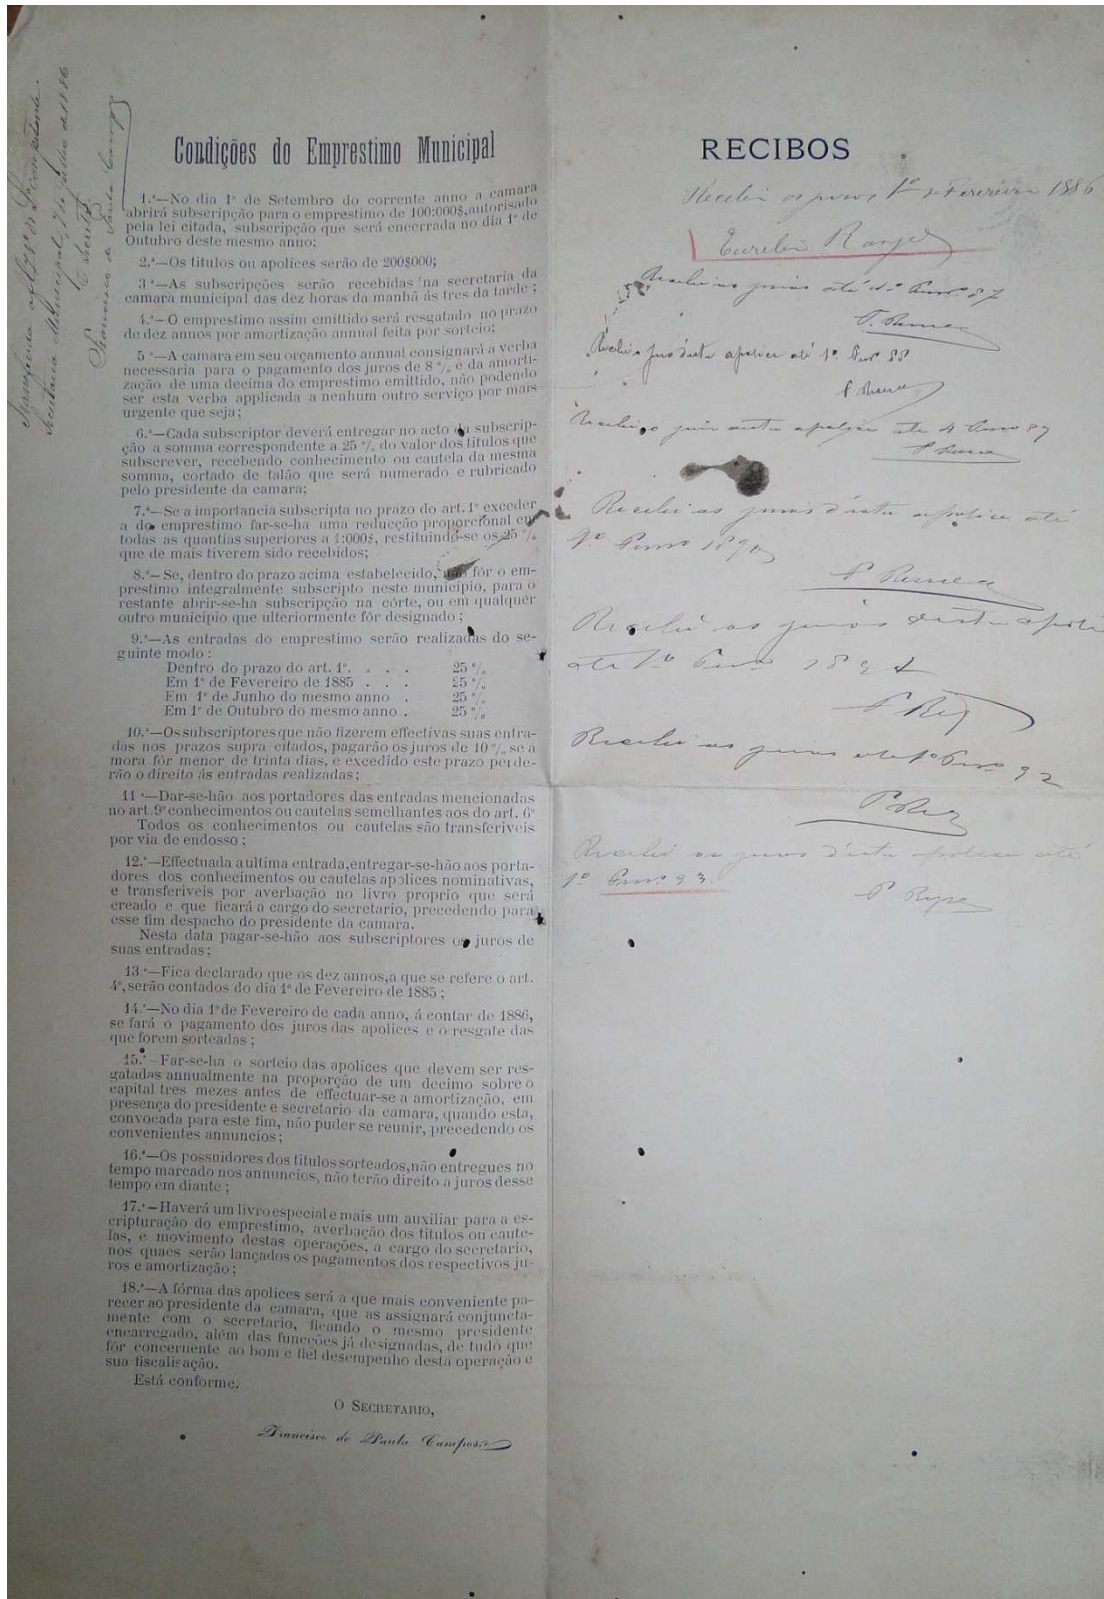 Condições do Emprestimo Municipal
1.ª—No dia 1º de Setembro do corrente anno a camara
abrirá subscripção para o emprestimo de 100:000$, autorisado
pela lei citada, subscripção que será encerrada no dia 1º de
Outubro deste mesmo anno;
2.ª—Os titulos ou apolices serão de 200$000;
3ª—As subscripções serão recebidas na secretaria da
camara municipal das dez horas da manhã ás tres da tarde;
4.ª—O emprestimo assim emittido será resgatado no prazo
de dez annos por amortização annual feita por sorteio;
5ª—A camara em seu orçamento annual consignará a verba
necessaria para o pagamento dos juros de 8 % e da amorti-
zação de uma decima do emprestimo emittido, não podendo
ser esta verba applicada a nenhum outro serviço por mais
urgente que seja;
6.ª—Cada subscriptor deverá entregar no acto da subscrip-
ção a somma correspondente a 25 % do valor dos titulos que
subscrever, recebendo conhecimento ou cautela da mesma
somma, cortado de talão que será numerado e rubricado
pelo presidente da camara;
7.ª—Se a importancia subscripta no prazo do art. 1º exceder
a do emprestimo far-se-ha uma reducção proporcional em
todas as quantias superiores a 1:000$, restituindo-se os 25 %
que de mais tiverem sido recebidos;
8.ª—Se, dentro do prazo acima estabelecido, não fôr o em-
prestimo integralmente subscripto neste municipio, para o
restante abrir-se-ha subscripção na côrte, ou em qualquer
outro municipio que ulteriormente fôr designado;
9.ª—As entradas do emprestimo serão realizadas do se-
guinte modo:
Dentro do prazo do art. 1º. . . . 25 %
Em 1º de Fevereiro de 1885 . . . 25 %
Em 1º de Junho do mesmo anno . 25 %
Em 1º de Outubro do mesmo anno . 25 %
10.ª—Os subscriptores que não fizerem effectivas suas entra-
das nos prazos supra citados, pagarão os juros de 10 %, se a
mora fôr menor de trinta dias, e excedido este prazo perde-
rão o direito ás entradas realizadas;
11ª—Dar-se-hão aos portadores das entradas mencionadas
no art. 9º conhecimentos ou cautelas semelhantes aos do art. 6º
Todos os conhecimentos ou cautelas são transferiveis
por via de endosso;
12.ª—Effectuada a ultima entrada, entregar-se-hão aos porta-
dores dos conhecimentos ou cautelas apolices nominativas,
e transferiveis por averbação no livro proprio que será
creado e que ficará a cargo do secretario, precedendo para
esse fim despacho do presidente da camara.
Nesta data pagar-se-hão aos subscriptores os juros de
suas entradas;
13.ª—Fica declarado que os dez annos, a que se refere o art.
4º, serão contados do dia 1º de Fevereiro de 1885;
14.ª—No dia 1º de Fevereiro de cada anno, á contar de 1886,
se fará o pagamento dos juros das apolices e o resgate das
que forem sorteadas;
15.ª—Far-se-ha o sorteio das apolices que devem ser res-
gatadas annualmente na proporção de um decimo sobre o
capital tres mezes antes de effectuar-se a amortização, em
presença do presidente e secretario da camara, quando esta,
convocada para este fim, não puder se reunir, precedendo os
convenientes annuncios;
16.ª—Os possuidores dos titulos sorteados, não entregues no
tempo marcado nos annuncios, não terão direito a juros desse
tempo em diante;
17.ª—Haverá um livro especial e mais um auxiliar para a es-
cripturação do emprestimo, averbação dos titulos ou caute-
las, e movimento destas operações, a cargo do secretario,
nos quaes serão lançados os pagamentos dos respectivos ju-
ros e amortização;
18.ª—A fórma das apolices será a que mais conveniente pa-
recer ao presidente da camara, que as assignará conjuncta-
mente com o secretario, ficando o mesmo presidente
encarregado, além das funcções já designadas, de tudo que
fôr concernente ao bom e fiel desempenho desta operação e
sua fiscalisação.
Está conforme.
O SECRETARIO,
Francisco de Paula Campos
Secretaria Municipal, 7 de Julho de 1886
Francisco de Paula Campos
RECIBOS
Recebi os juros 1º de Fevereiro 1886
Recebi os juros até 1º 87
Recebi juros desta apolice até 1º 88
Recebi juros desta apolice até 1 89
Recebi os juros d'esta apolice até
1º 1890
Recebi os juros desta apolice
até 1º 1891
Recebi os juros até 1º 92
Recebi os juros d'esta apolice até
1º 93.